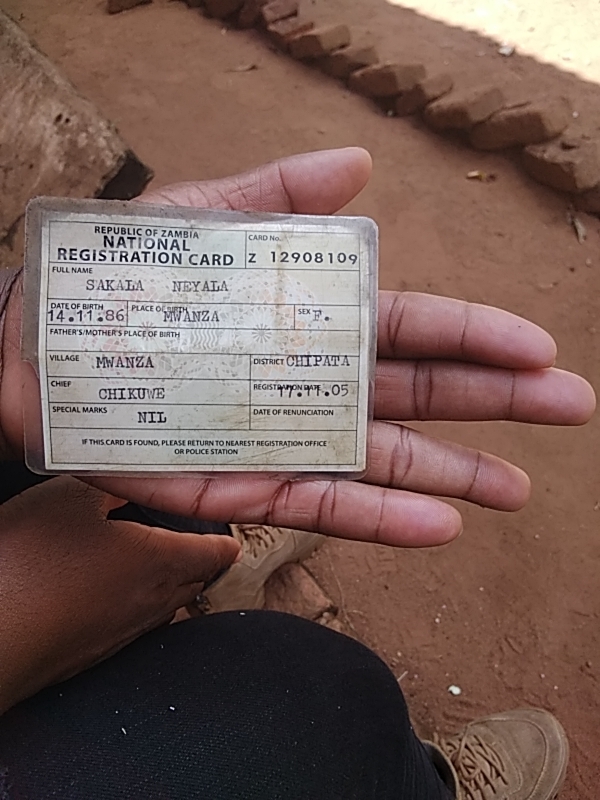 REPUBLIC OF ZAMBIA
NATIONAL
REGISTRATION CARD
CARD No.
Z 12908109
FULL NAME
SAKALA NEYALA
DATE OF BIRTH
14.11.86
PLACE OF BIRTH
MWANZA
SEX
F.
FATHER'S/MOTHER'S PLACE OF BIRTH
VILLAGE MWANZA
DISTRICT CHIPATA
CHIEF
CHIKUWE
REGISTRATION DATE
17.11.05
SPECIAL MARKS
NIL
DATE OF RENUNCIATION
IF THIS CARD IS FOUND, PLEASE RETURN TO NEAREST REGISTRATION OFFICE
OR POLICE STATION